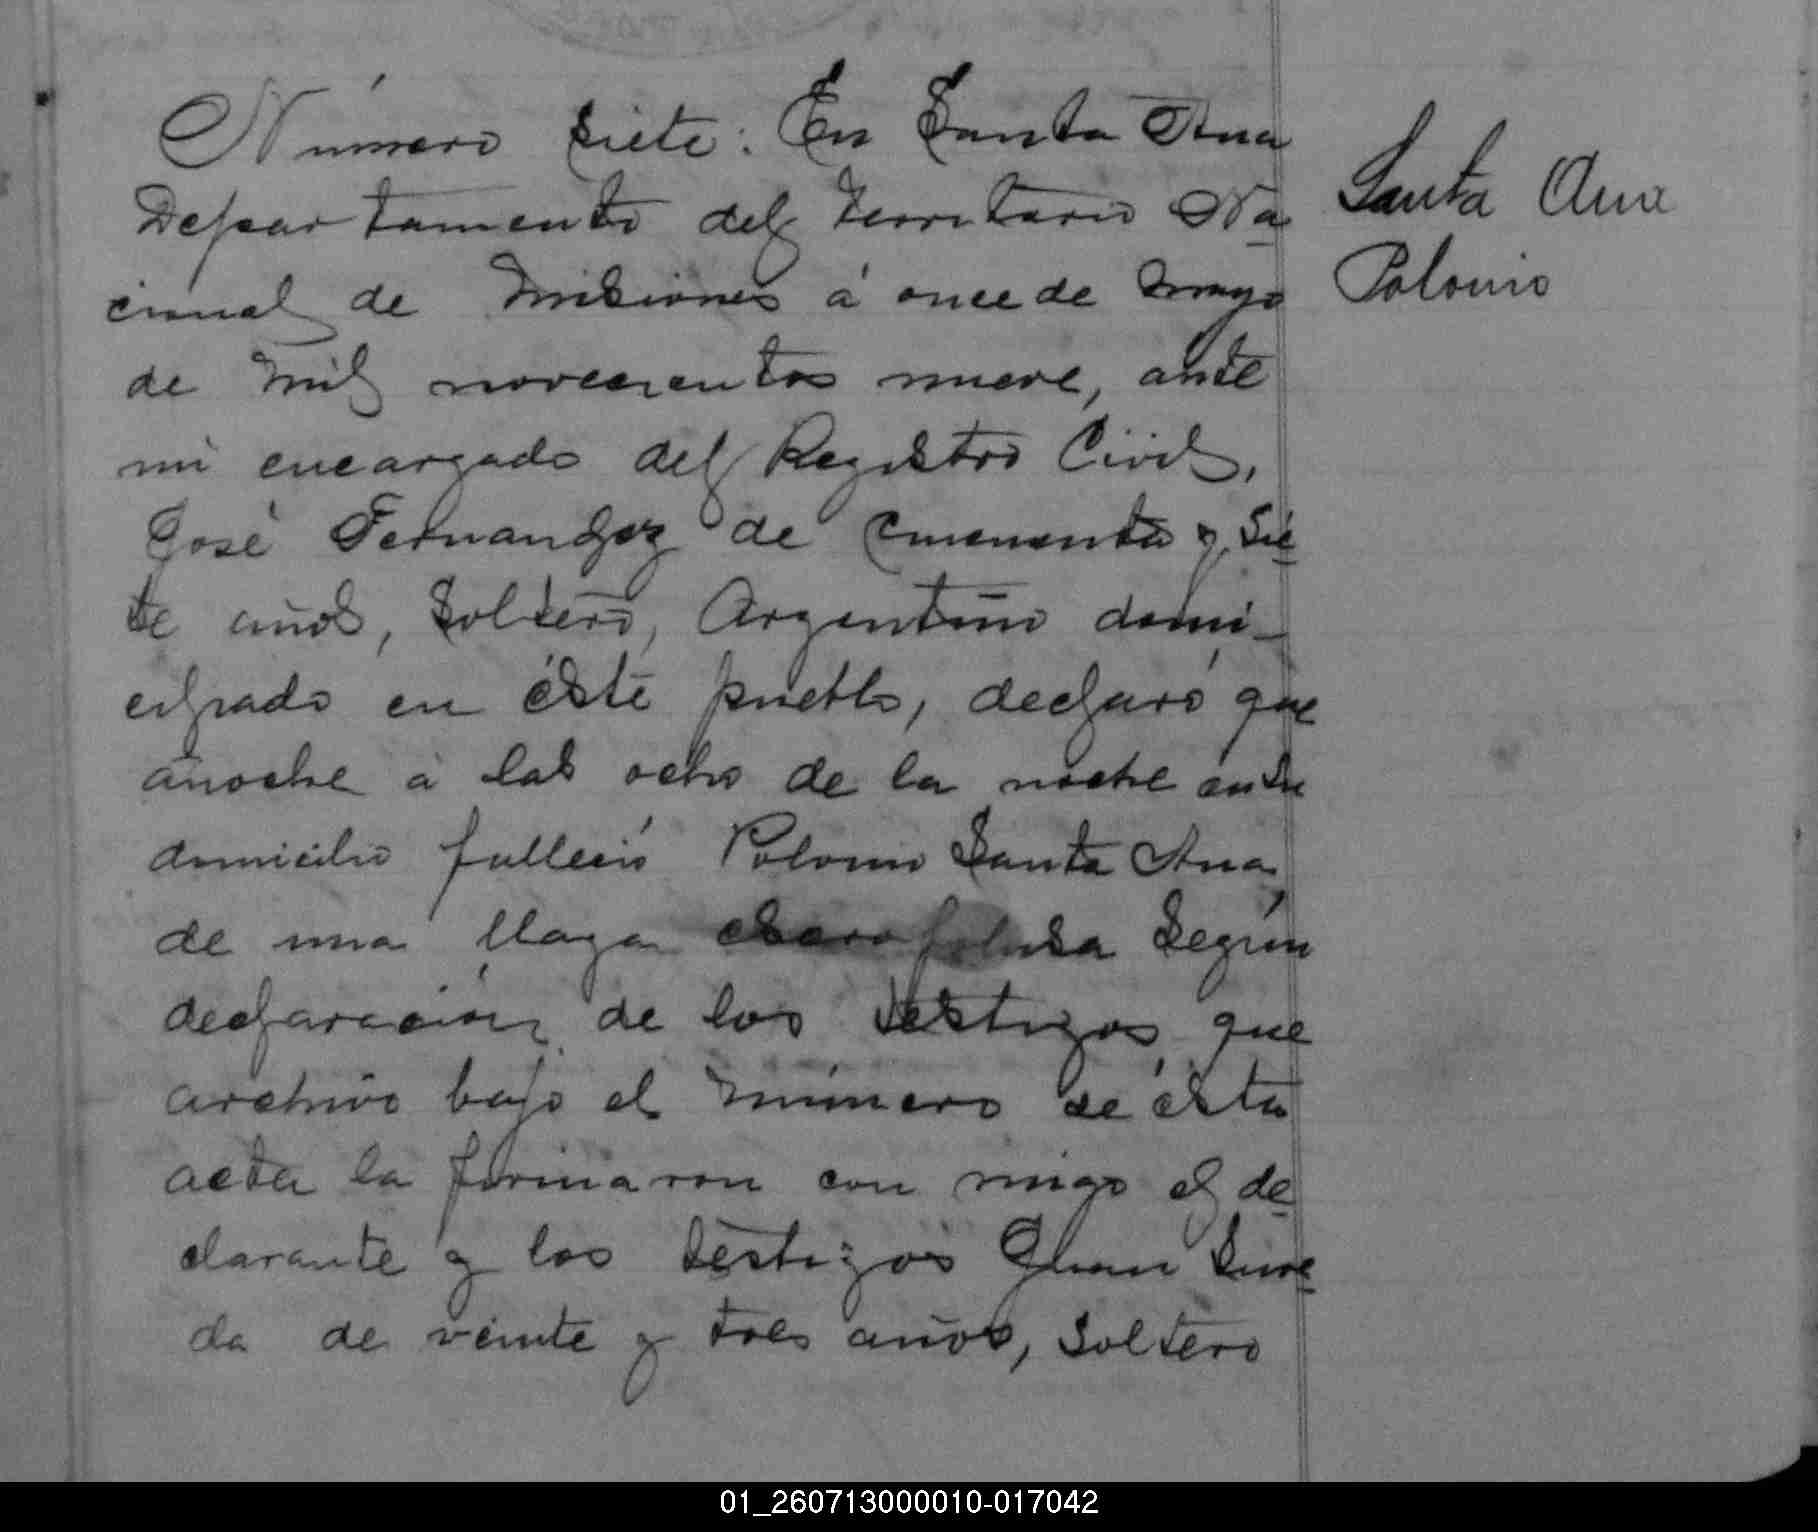 Número siete: En Santa Ana
Departamento del Territorio Na
cional de Misiones á once de mayo
de mil novecientos nueve, ante
mi encargado del Registro Civil,
José Fernandez de cincuenta y sie
te años, soltero, Argentino domi-
ciliado en éste pueblo, declaró que
anoche á las ocho de la noche en su
domicilio falleció Polonio Santa Ana,
de una llaga escrofulosa según
declaración de los testigos, que
archivo bajo el número de ésta
acta la firmaron con migo el de
clarante y los testigos Juan Sure
da de veinte y tres años, soltero
Santa Ana
Polonio
01_260713000010-017042